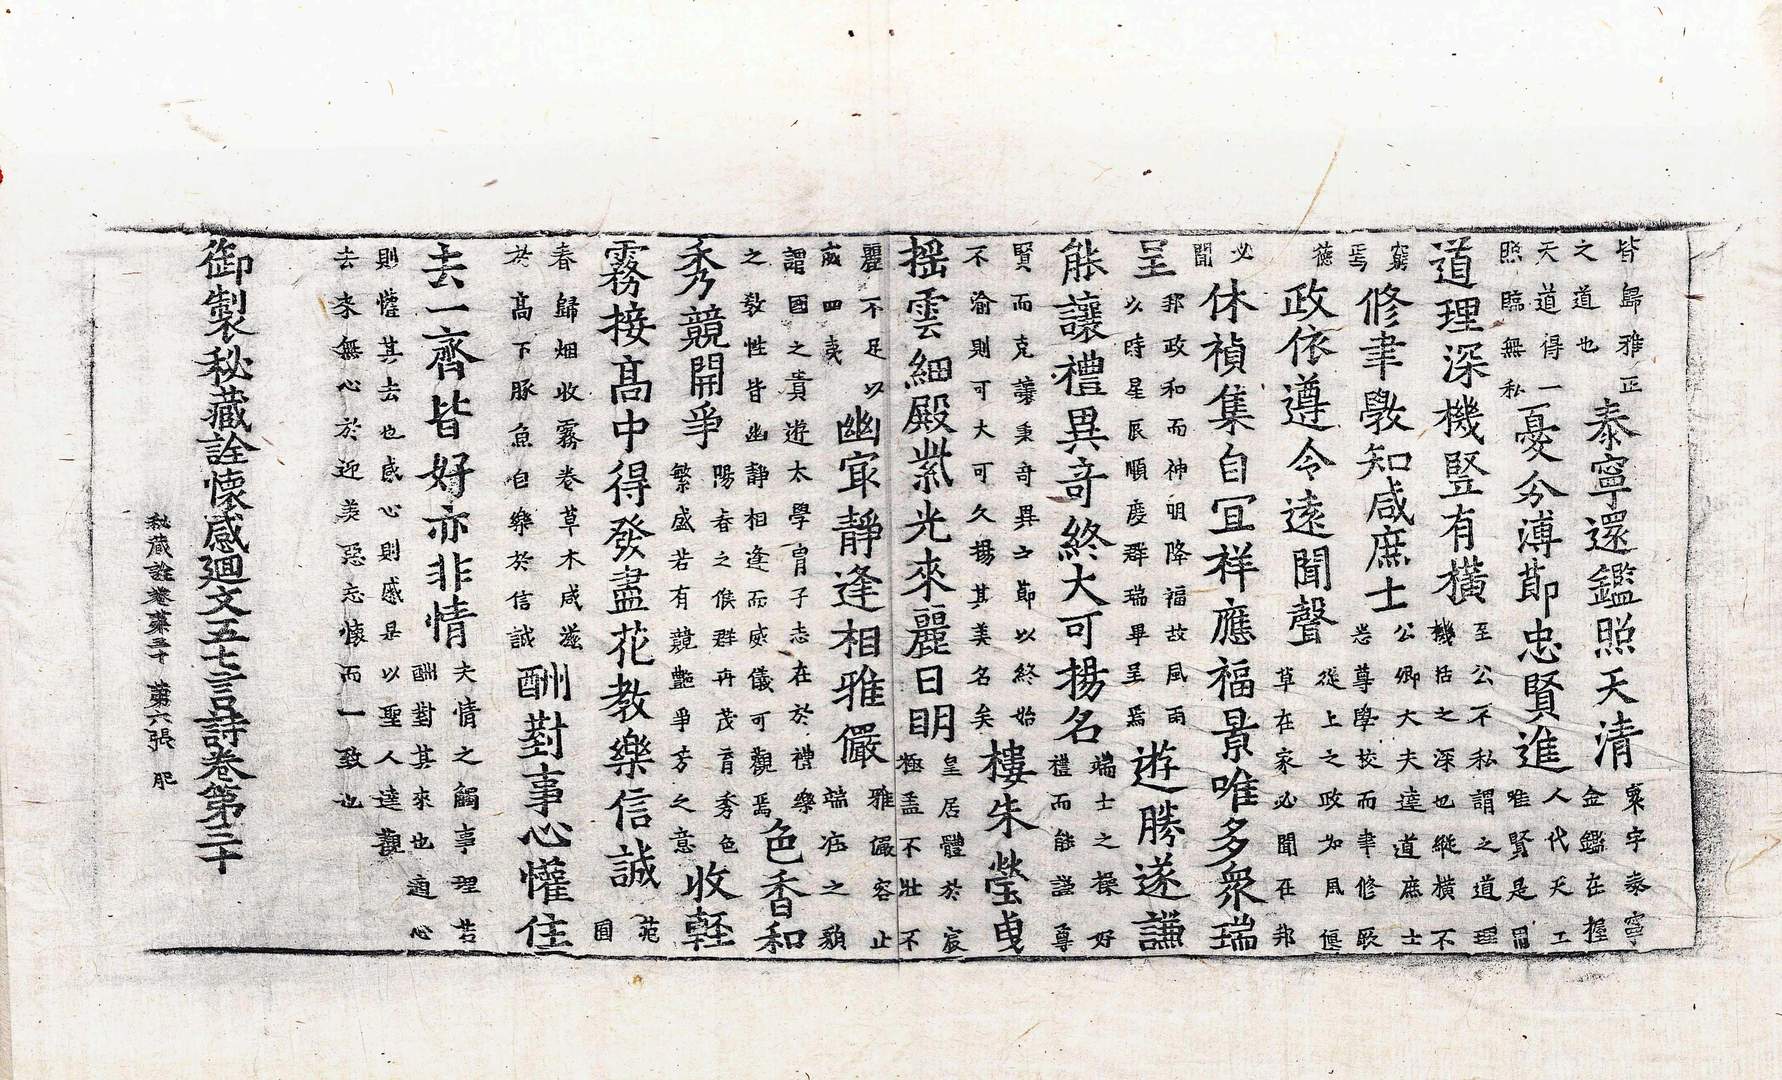 皆歸雅正之道也泰寧還鑑照天清寰宇泰寧金鑑在握
天道得一照臨無私憂分溥節忠賢進人代天工唯賢是用
道理深機豎有橫至公不私謂之道理機括之深也縱橫不
窮焉修聿斆知咸庶士公卿大夫達道庶士尊學校而聿修厥
德政依遵令遠聞聲從上之政如風偃草在家必聞在邦
必聞休禎集自冝祥應福景唯多衆瑞
呈邦政和而神明降福故風雨以時星辰順度群瑞畢呈焉遊勝遂謙
能讓禮異竒終大可揚名端士之操好禮而能謙尊
賢而克讓秉奇異之節以終始不渝則可大可久揚其美名矣樓朱瑩曳
搖雲細殿紫光來麗日明皇居體於宸極盖不壯不
麗不足以威四夷幽㝡靜逢相雅儼雅儼容止端莊之貌
謂國之貴遊太學胄子志在於禮樂之敎性皆幽靜相逢而威儀可觀焉色香和
秀競開爭陽春之候群卉茂育秀色繁盛若有競艷爭芳之意收輕
霧接髙中得發盡花教樂信誠苑囿
春歸烟收霧卷草木咸滋於髙下豚魚自樂於信誠酬對事心懽住
去一齊皆好亦非情夫情之觸事理若酬對其來也適心
則懽其去也感心則慼是以聖人達觀
去來無心於迎美惡忘懷而一致也
御製秘藏詮懷感廻文五七言詩卷第三十
秘藏詮卷苐三十 苐六張 肥